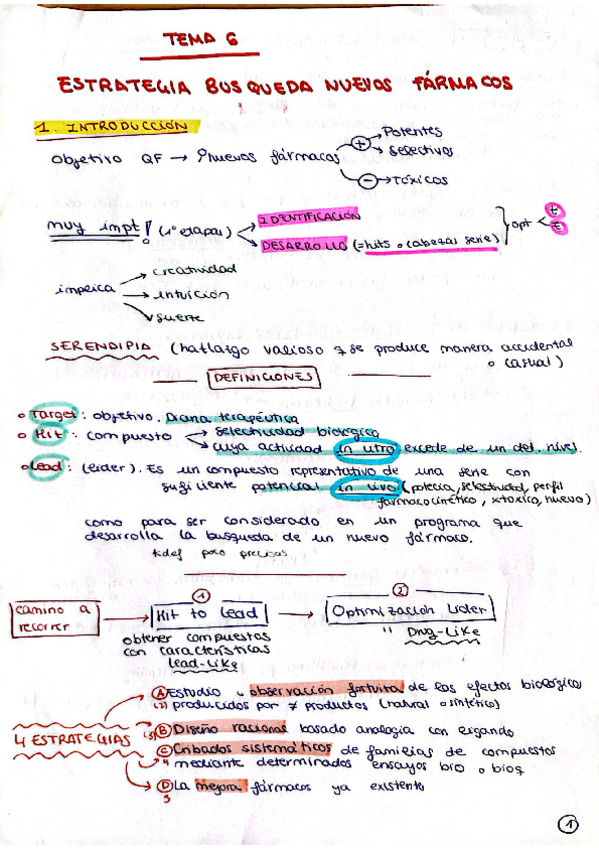 TEMA 6
ESTRATEGIA BUSQUEDA NUEVOS FÁRMACOS
1. INTRODUCCIÓN
Objetivo QF → nuevos fármacos
+ → Potentes
→ Selectivos
- → Tóxicos
muy impt! (1ª etapas)
IDENTIFICACIÓN
DESARROLLO (=hits o cabezas serie)
opt
t
€
impeica
creatividad
intuición
suerte
SERENDIPIA (hallazgo valioso q se produce manera accidental
o casual)
DEFINICIONES
Target: objetivo. Diana terapéutica
Hit: compuesto
selectividad biológica
cuya actividad in vitro excede de un det. nivel.
Lead: (leider). Es un compuesto representativo de una serie con
suficiente potencial in vivo (potecia, selectividad, perfil
farmacocinético, xtoxico, nuevo)
como para ser considerado en un programa que
desarrolla la busqueda de un nuevo fármaco.
def poco precisas
camino a
recorrer
1
Hit to Lead
obtener compuestos
con características
Lead-Like
2
Optimización Lider
" Drug-Like
4 ESTRATEGIAS
A Estudio u observación fortuita de los efectos biológicos
producidos por ≠ productos (natural o sintético)
B Diseño racional basado analogia con ligando
C Cribados sistemáticos de familias de compuestos
mediante determinados ensayos bio o bioq
D La mejora fármacos ya existente
1